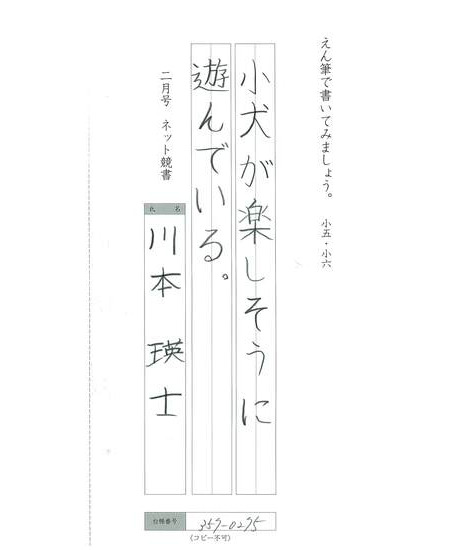 えん筆で書いてみましょう。　小五・小六
小犬が楽しそうに
遊んでいる。
二月号　ネット競書
氏名
川本　瑛士
台帳番号　359-0295
(コピー不可)